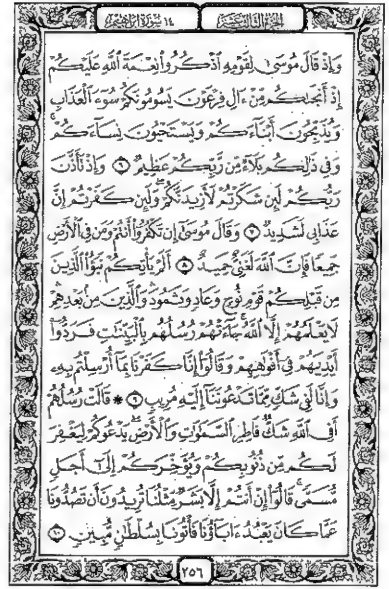 الجزء الثالث عشر ١٤ سورة إبراهيم
وَإِذْ قَالَ مُوسَىٰ لِقَوْمِهِ ٱذْكُرُواْ نِعْمَةَ ٱللَّهِ عَلَيْكُمْ
إِذْ أَنجَىٰكُم مِّنْ ءَالِ فِرْعَوْنَ يَسُومُونَكُمْ سُوٓءَ ٱلْعَذَابِ
وَيُذَبِّحُونَ أَبْنَآءَكُمْ وَيَسْتَحْيُونَ نِسَآءَكُمْ ۚ
وَفِى ذَٰلِكُم بَلَآءٌ مِّن رَّبِّكُمْ عَظِيمٌ ٦ وَإِذْ تَأَذَّنَ
رَبُّكُمْ لَئِن شَكَرْتُمْ لَأَزِيدَنَّكُمْ ۖ وَلَئِن كَفَرْتُمْ إِنَّ
عَذَابِى لَشَدِيدٌ ٧ وَقَالَ مُوسَىٰٓ إِن تَكْفُرُوٓاْ أَنتُمْ وَمَن فِى ٱلْأَرْضِ
جَمِيعًا فَإِنَّ ٱللَّهَ لَغَنِىٌّ حَمِيدٌ ٨ أَلَمْ يَأْتِكُمْ نَبَؤُاْ ٱلَّذِينَ
مِن قَبْلِكُمْ قَوْمِ نُوحٍ وَعَادٍ وَثَمُودَ ۛ وَٱلَّذِينَ مِنۢ بَعْدِهِمْ ۛ
لَا يَعْلَمُهُمْ إِلَّا ٱللَّهُ ۚ جَآءَتْهُمْ رُسُلُهُم بِٱلْبَيِّنَٰتِ فَرَدُّوٓاْ
أَيْدِيَهُمْ فِىٓ أَفْوَٰهِهِمْ وَقَالُوٓاْ إِنَّا كَفَرْنَا بِمَآ أُرْسِلْتُم بِهِۦ
وَإِنَّا لَفِى شَكٍّ مِّمَّا تَدْعُونَنَآ إِلَيْهِ مُرِيبٍ ٩ ۞ قَالَتْ رُسُلُهُمْ
أَفِى ٱللَّهِ شَكٌّ فَاطِرِ ٱلسَّمَٰوَٰتِ وَٱلْأَرْضِ ۖ يَدْعُوكُمْ لِيَغْفِرَ
لَكُم مِّن ذُنُوبِكُمْ وَيُؤَخِّرَكُمْ إِلَىٰٓ أَجَلٍ
مُّسَمًّى ۚ قَالُوٓاْ إِنْ أَنتُمْ إِلَّا بَشَرٌ مِّثْلُنَا تُرِيدُونَ أَن تَصُدُّونَا
عَمَّا كَانَ يَعْبُدُ ءَابَآؤُنَا فَأْتُونَا بِسُلْطَٰنٍ مُّبِينٍ ١٠
٢٥٦